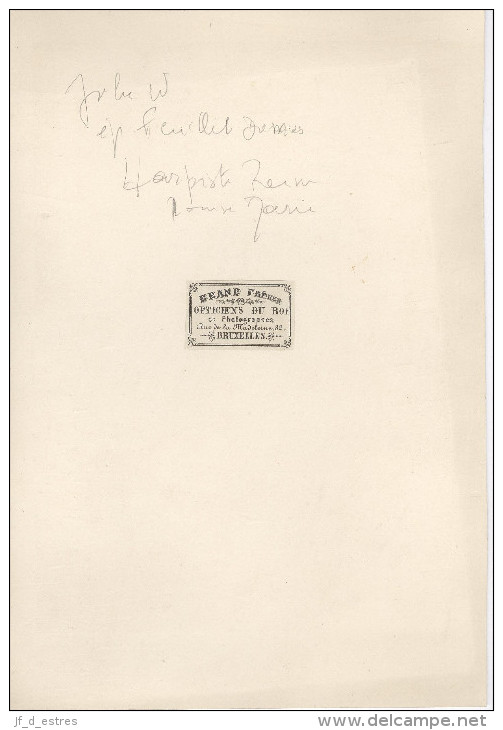 Julie W
ép Feuillet Dumas
Harpiste
Louise Marie
GRAND FRÈRES
OPTICIENS DU ROI
et Photographes
Rue de la Madeleine, 32.
BRUXELLES.
jf_d_estres
www.delcampe.net